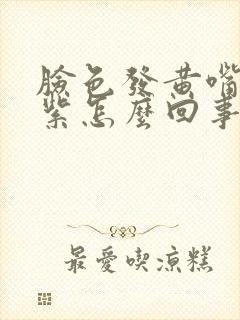 臉色發黃嘴
紫怎麼回事
最愛喫涼糕